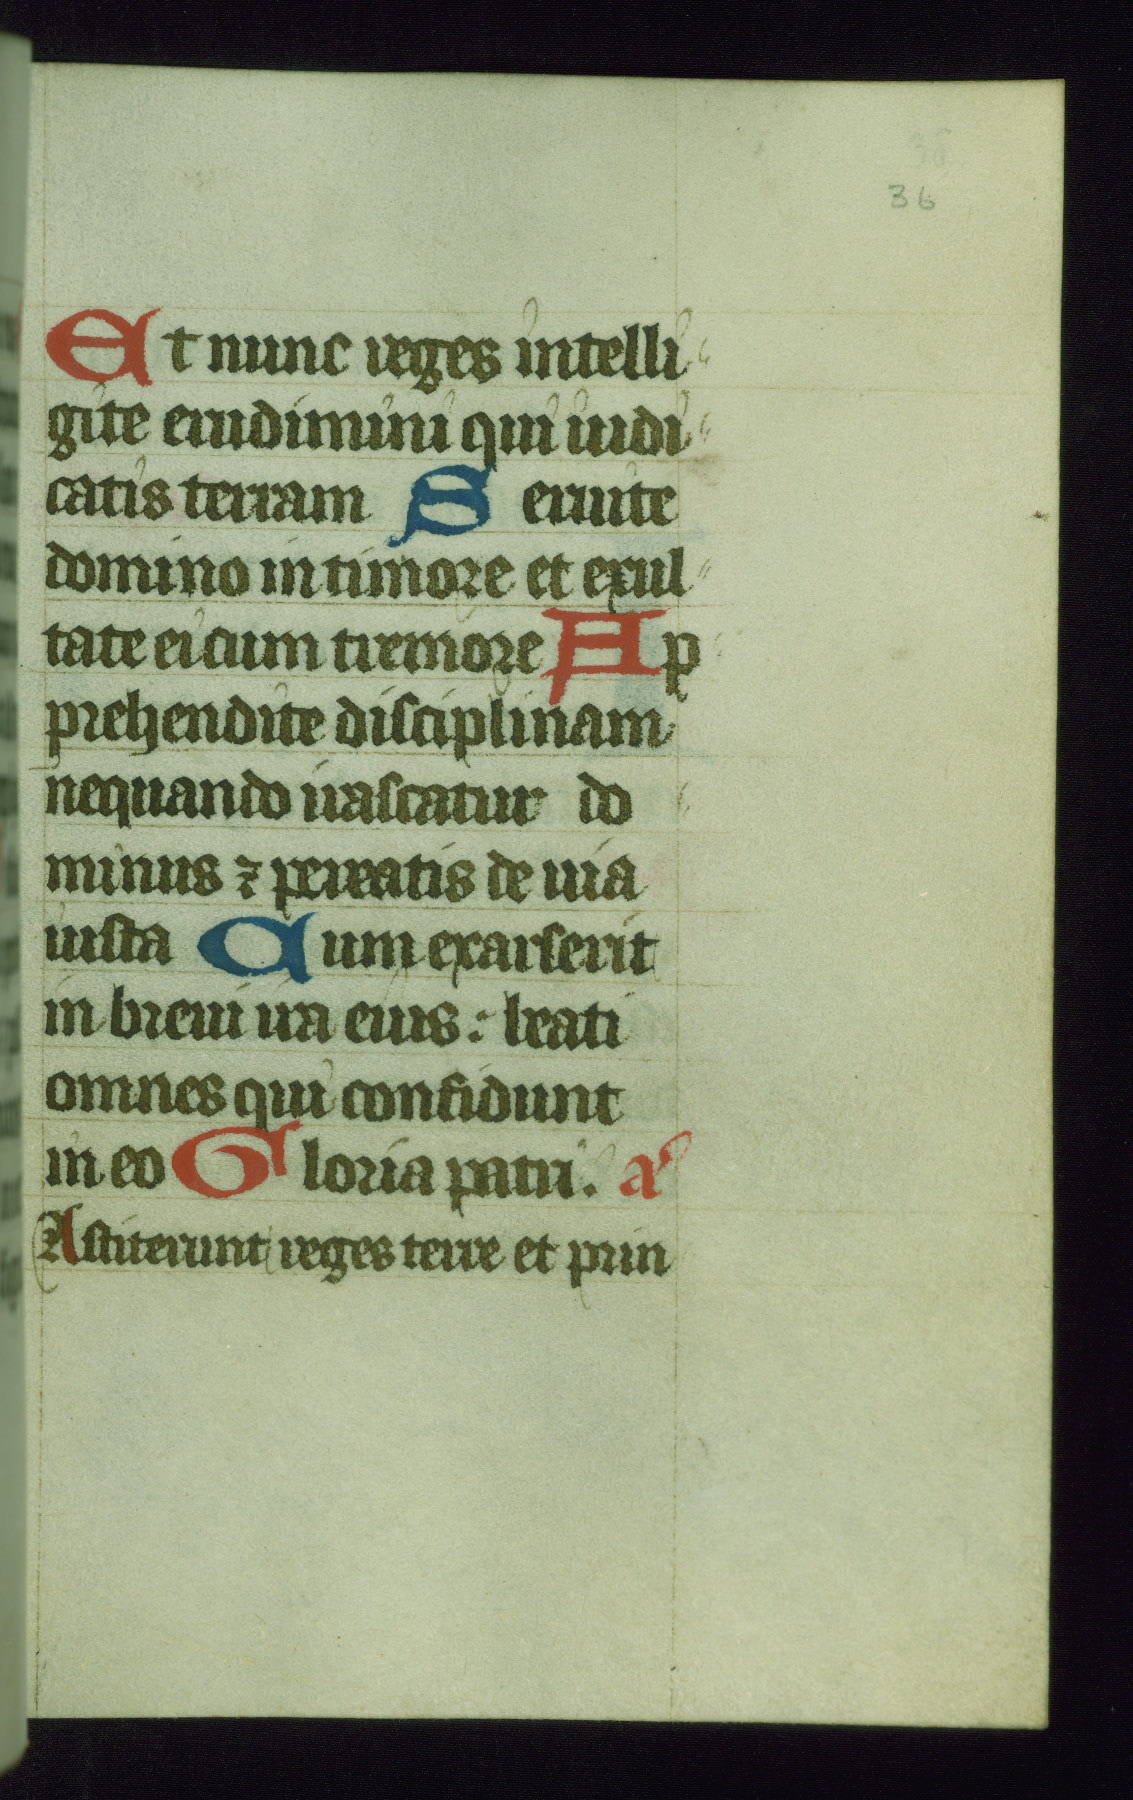 36
Et nunc reges intelli
gite erudimini qui iudi
catis terram Seruite
domino in timore et exul
tate ei cum tremore Ap
prehendite disciplinam
nequando irascatur do
minus ⁊ pereatis de uia
iusta Cum exarserit
in breui ira eius: beati
omnes qui confidunt
in eo Gloria patri. a
Astiterunt reges terre et prin